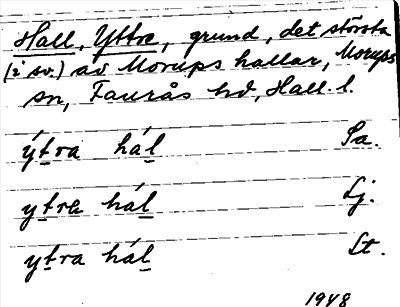 Hall, Yttre, grund, det största
(i sv.) av Morups hallar, Morups
sn, Faurås hd, Hall. l.
ýt̲ra hál̲ Pa.
yt̲re hál̲ Lj.
yt̲ra hál̲ Lt.
1948